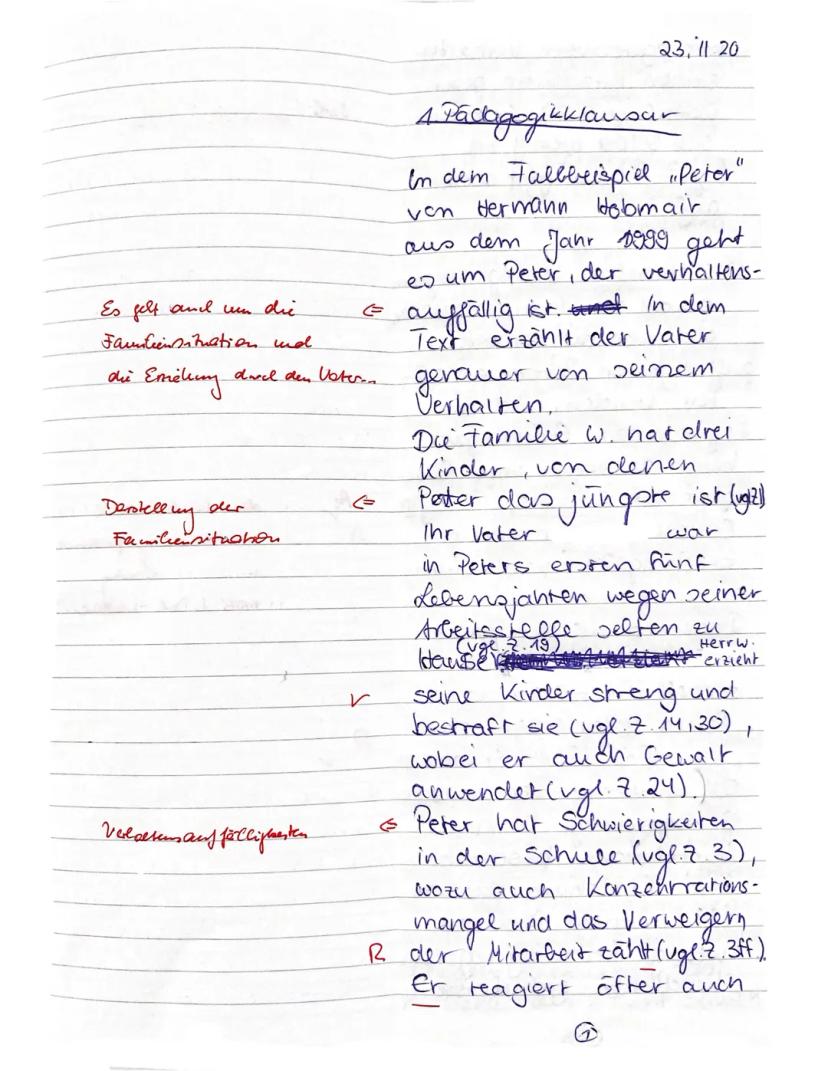 23.11.20
1. Pädagogikklausur
In dem Fallbeispiel „Peter"
von Hermann Hobmair
aus dem Jahr 1999 geht
es um Peter, der verhaltens-
Es geht auch um die ⇐ auffällig ist. In dem
Familiensituation und Text erzählt der Vater
die Erziehung durch den Vater... genauer von seinem
Verhalten.
Die Familie W. hat drei
Kinder, von denen
Darstellung der ⇐ Peter das jüngste ist (vgl. Z. 1)
Familiensituation Ihr Vater war
in Peters ersten fünf
Lebensjahren wegen seiner
Arbeitsstelle selten zu
Hause (vgl. Z. 19) Herr W. erzieht
V seine Kinder streng und
bestraft sie (vgl. Z. 14, 30),
wobei er auch Gewalt
anwendet (vgl. Z. 24).
Verhaltensauffälligkeiten ⇐ Peter hat Schwierigkeiten
in der Schule (vgl. Z. 3),
wozu auch Konzentrations-
mangel und das Verweigern
R der Mitarbeit zählt (vgl. Z. 3ff).
Er reagiert öfter auch
1